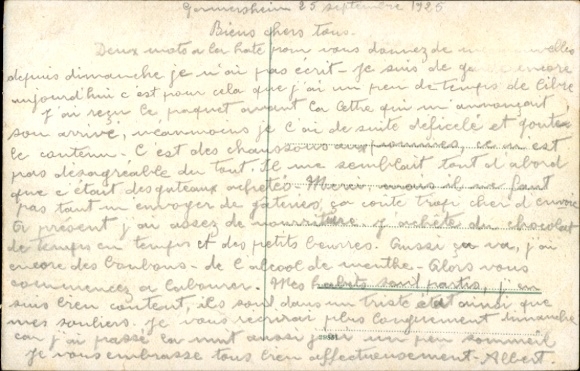 Germersheim 25 septembre 1925
Biens chers tous.
Deux mots a la hate pour vous donnez de mes nouvelles
depuis dimanche je n'ai pas écrit - Je suis de garde encore
aujourd'hui c'est pour cela que j'ai un peu de temps de libre
J'ai reçu le paquet avant la lettre qui m'annonçait
son arrivé, néanmoins je l'ai de suite déficelé et gouter
le contenu - C'est des chaussons aux pommes, ce n'est
pas désagréable du tout. Il me semblait tout d'abord
que c'était des gateaux achetés - Merci, mais il ne faut
pas tant m'envoyer de gateries, ça coute trop cher d'envoie
A présent j'ai assez de nourriture j'achète du chocolat
de temps en temps et des petits beurres. Aussi ça va, j'ai
encore des bonbons - de l'alcool de menthe - Alors vous
commencez a labourer. Mes habits sont partis, j'en
suis bien content, ils sont dans un triste état ainsi que
mes souliers. Je vous récrirai plus longuement dimanche
car j'ai passé la nuit aussi j'ai un peu sommeil
Je vous embrasse tous bien affectueusement - Albert.